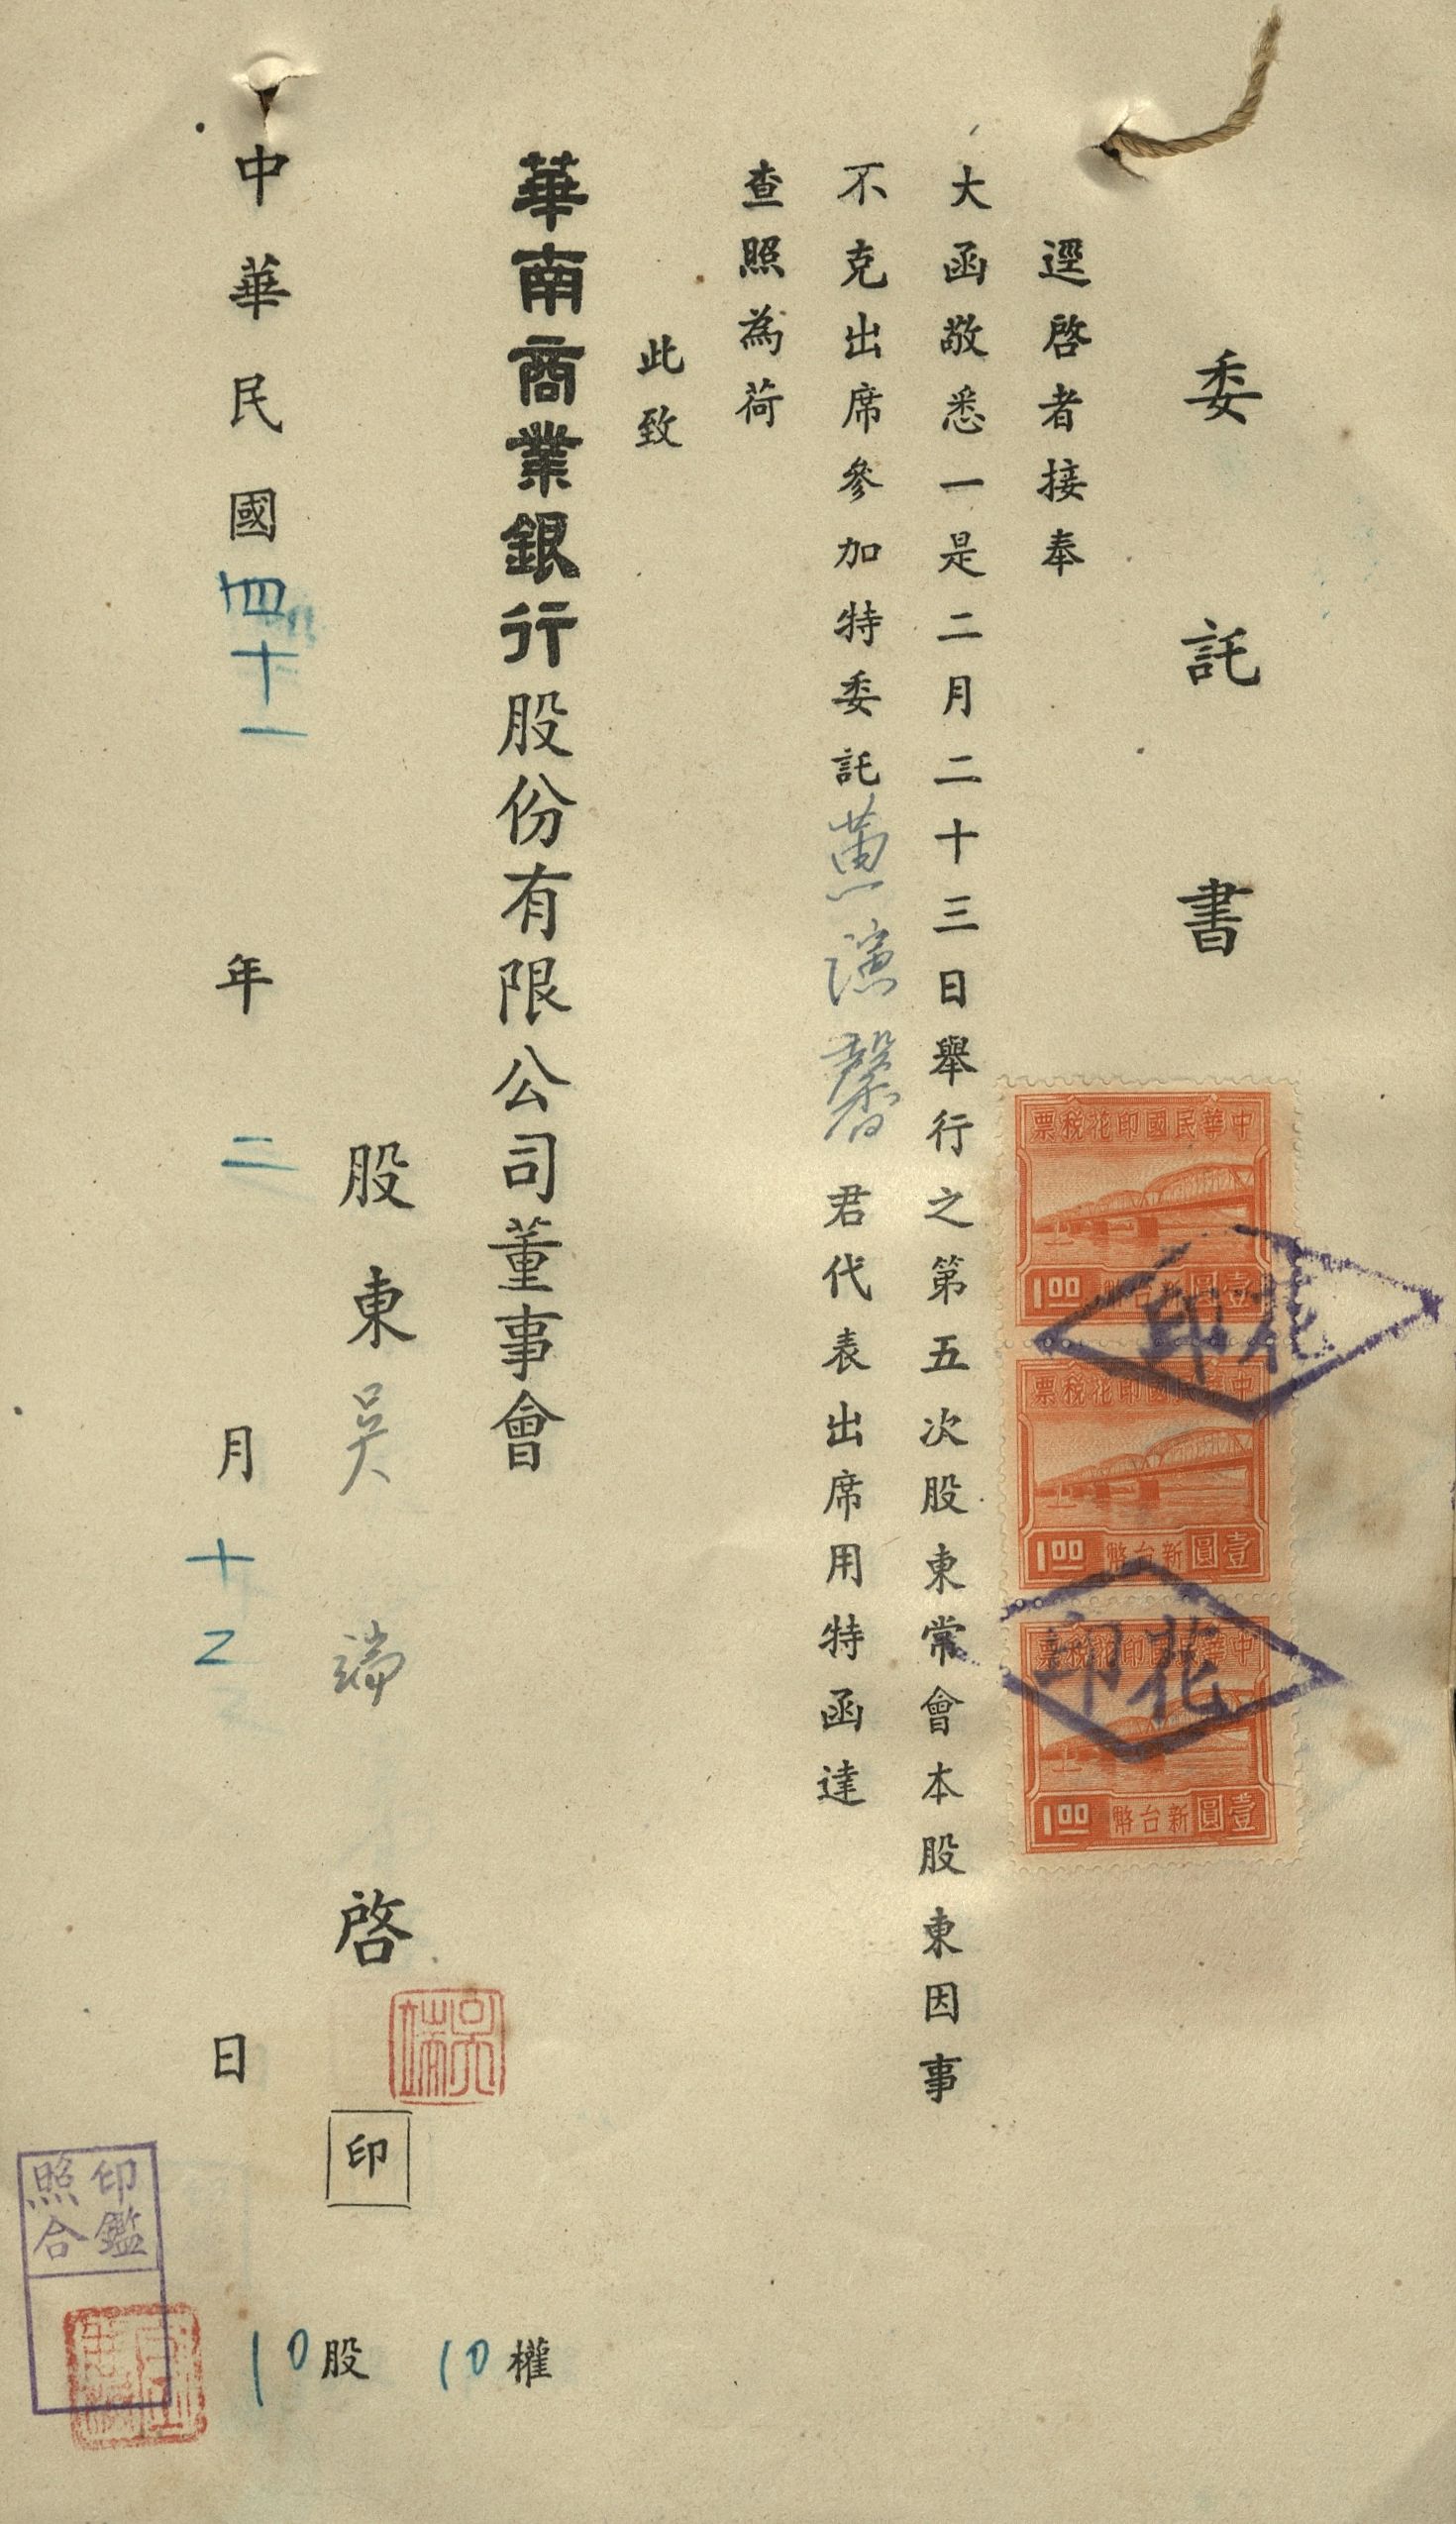 委託書
逕啓者接奉
大函敬悉一是二月二十三日舉行之第五次股東常會本股東因事
不克出席參加特委託黃演馨君代表出席用特函達
查照為荷
此致
華南商業銀行股份有限公司董事會
股東吳端啓
印
中華民國四十一年二月十二日
10權
10股
中華民國印花稅票
壹圓新台幣 1.00
中華民國印花稅票
壹圓新台幣 1.00
中華民國印花稅票
壹圓新台幣 1.00
花印
花印
吳端
印鑑
照合